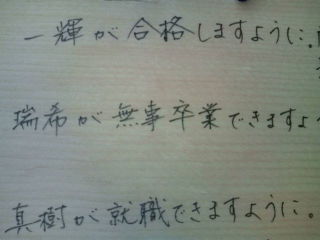 一輝が合格しますように。
瑞希が無事卒業できますよ
真樹が就職できますように。